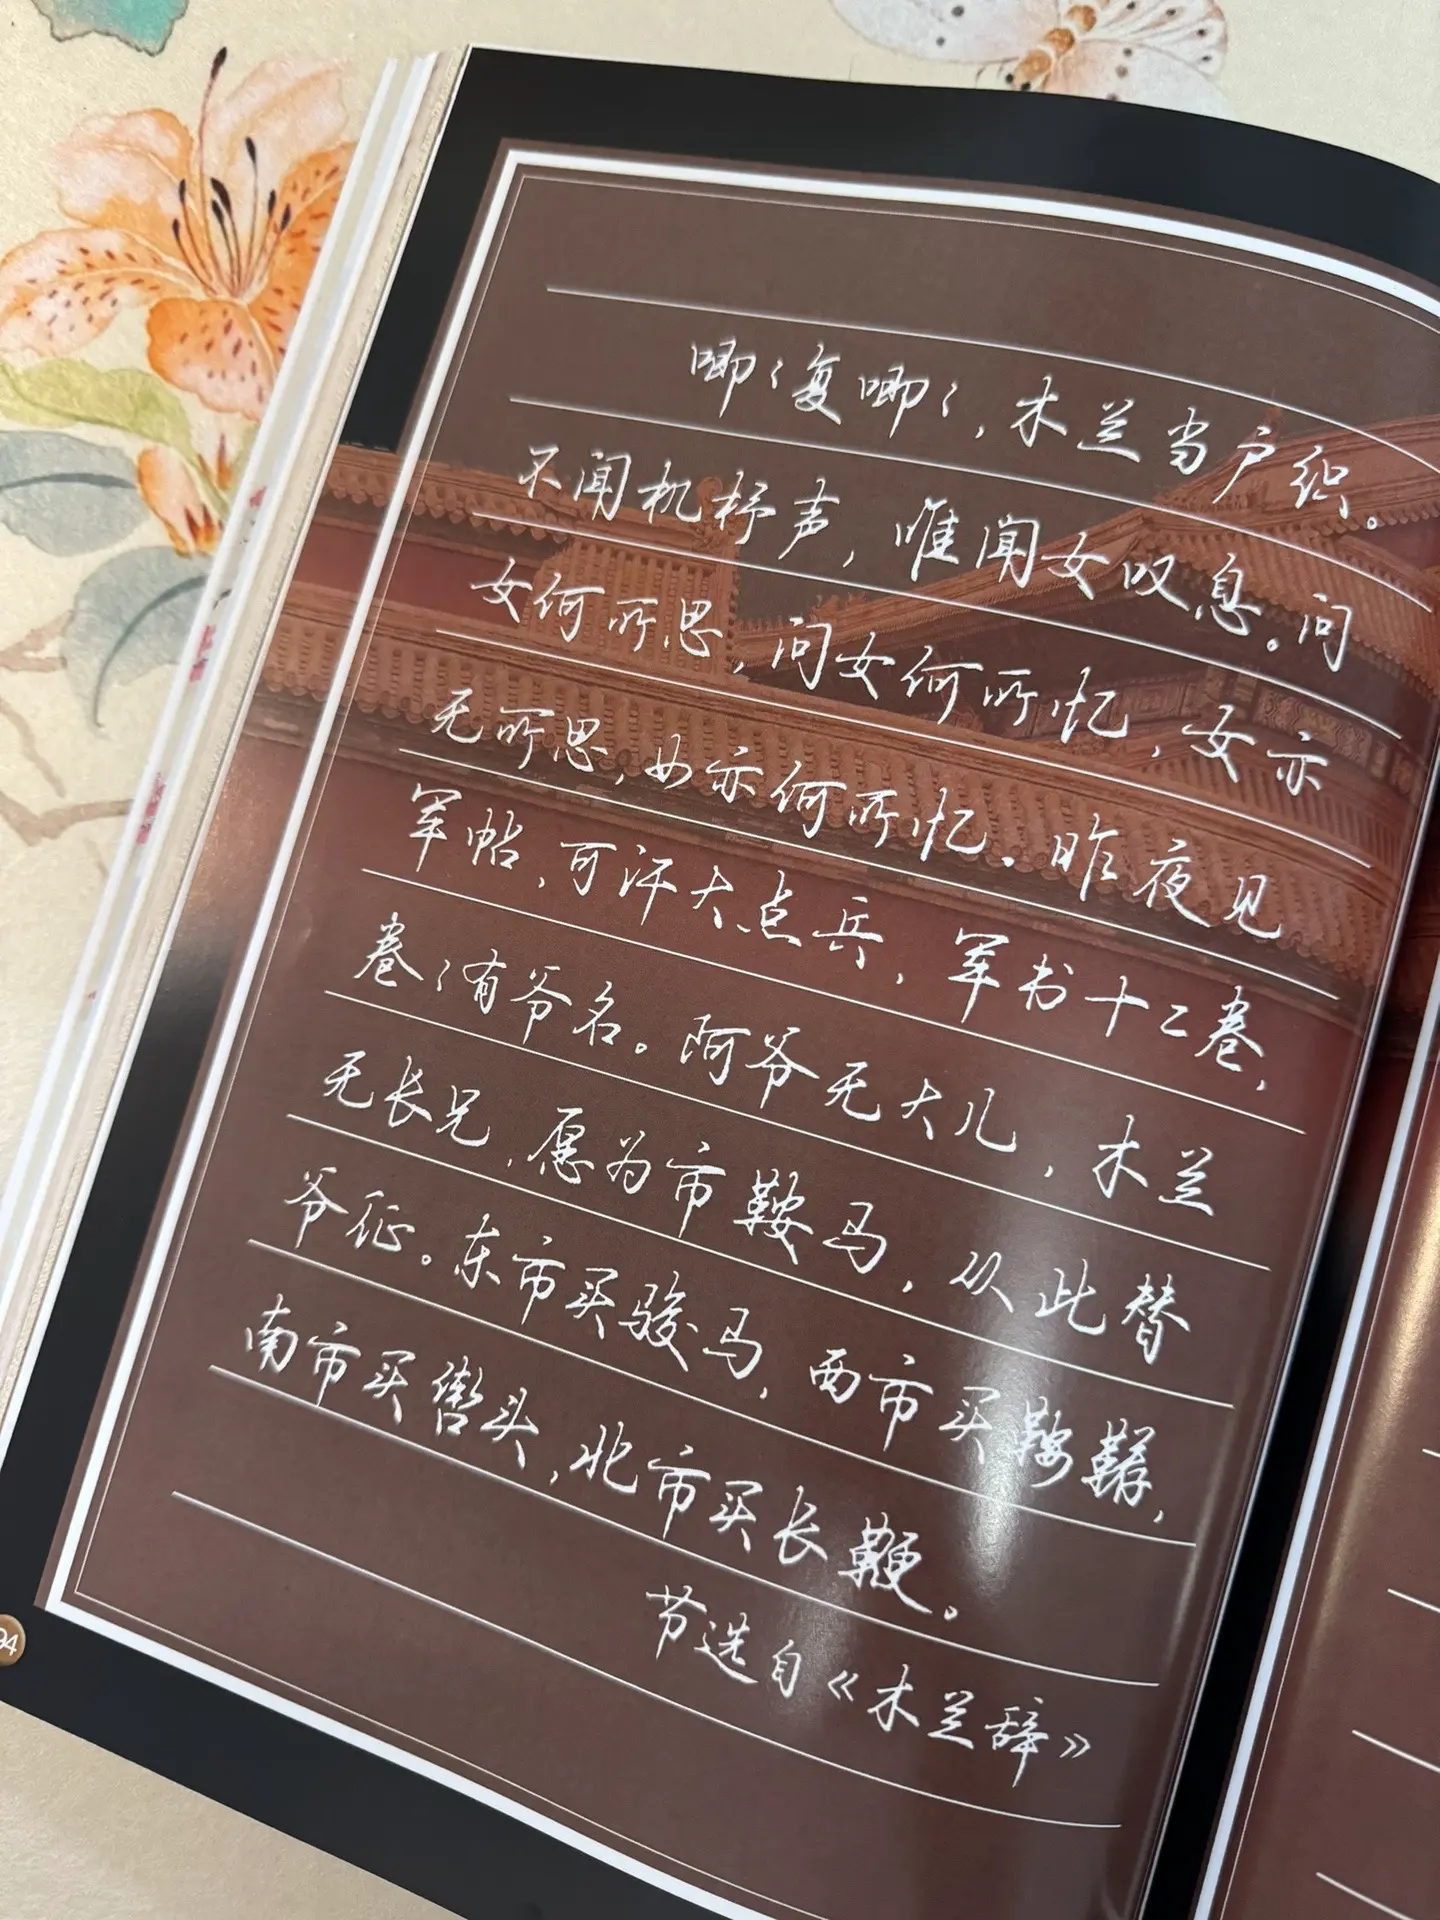 唧々复唧々，木兰当户织。
不闻机杼声，唯闻女叹息。问
女何所思，问女何所忆，女亦
无所思，女亦何所忆。昨夜见
军帖，可汗大点兵，军书十二卷，
卷々有爷名。阿爷无大儿，木兰
无长兄，愿为市鞍马，从此替
爷征。东市买骏马，西市买鞍鞯，
南市买辔头，北市买长鞭。
节选自《木兰辞》